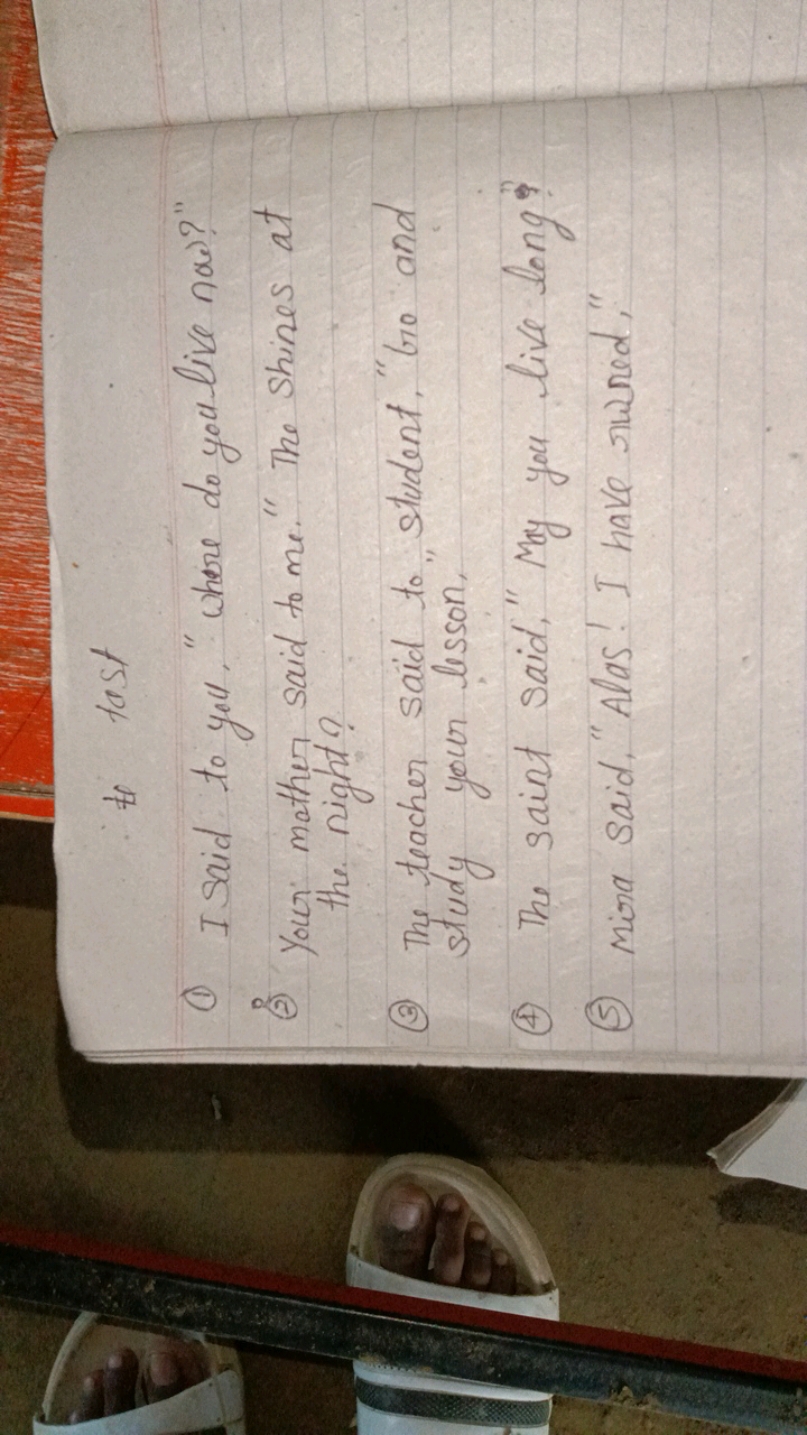 to tast
① I said to you, "Where do you live now?"
② Your mother said to me." The shines at
the night?
③ The teacher said to student, "Go and
study your lesson."
④ The saint said," May you live long"
⑤ Mira said," Alas! I have ruined,"